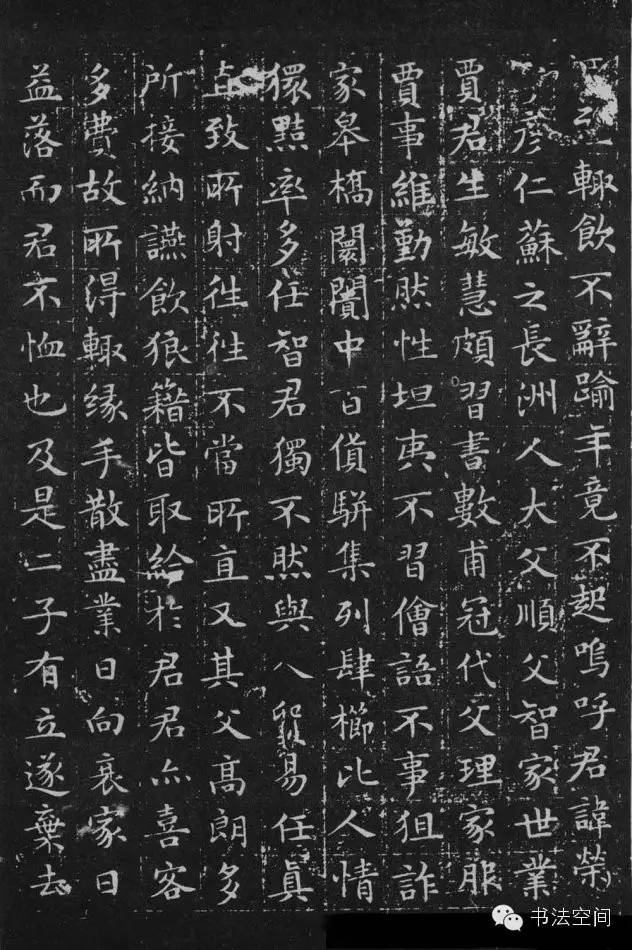 輙飲不辭踰年竟不起嗚呼君諱榮
彥仁蘇之長洲人大父順父智家世業
賈君生敏慧頗習書數甫冠代父理家服
賈事維勤然性坦夷不習儈語不事狙詐
家皋橋闤闠中百貨駢集列肆櫛比人情
獧黠率多任智君獨不然與人貿易任真
致所射徃徃不當所直又其父高朗多
所接納讌飲狼籍皆取給於君君亦喜客
多費故所得輙緣手散盡業日向衰家日
益落而君不恤也及是二子有立遂棄去
书法空间